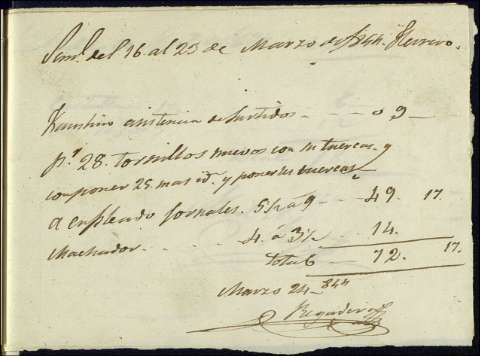 Semª del 16. al 23 de Marzo de 1844. Herrero.
Faustino existencia de surtidos - - - o 9 -
pr. 28. tornillos nuevos con su tuercas y
componer 25. mas id. y ponerles tuercas
a empleado jornales. 5 1/2 a 9 - - 49. 17.
Machador - - - 4. á 3 1/2 - - - 14.
Total - - - 72. 17.
Marzo 24 - 844